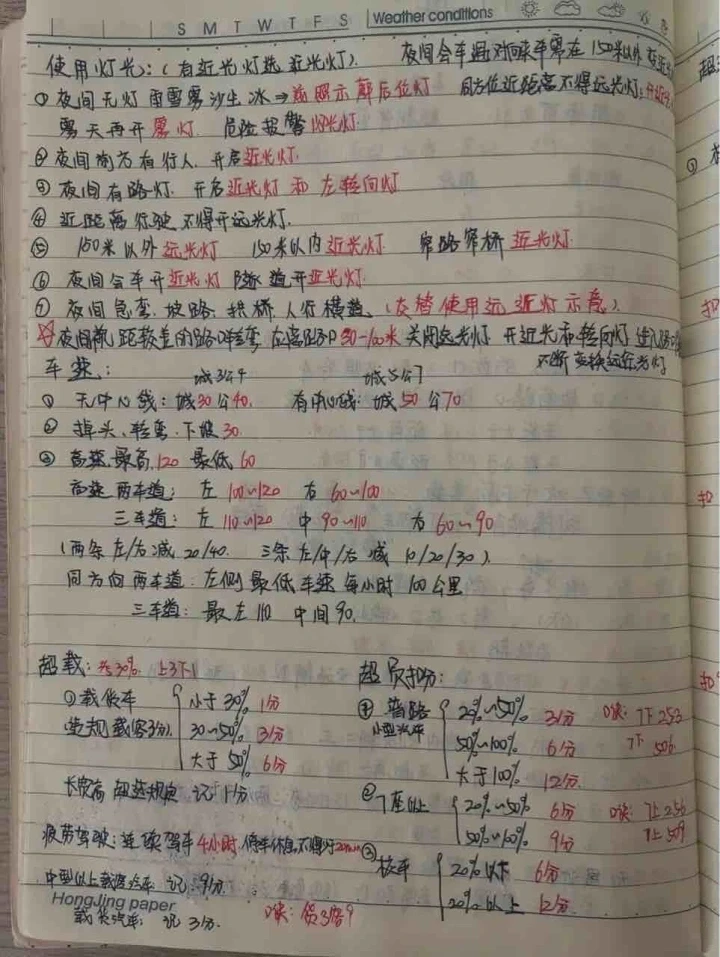 S M T W T F S Weather conditions
使用灯光:(有近光灯选近光灯). 夜间会车遇对向来车需在150米以外
①夜间无灯 雨雪雾沙尘冰⇒前照示廓后位灯 同方位近距离不得远光灯;
雾天再开雾灯 危险报警闪光灯
②夜间前方有行人,开启近光灯
③夜间有路灯.开启近光灯 和 左转向灯
④近距离行驶不得开远光灯.
⑤150米以外远光灯 150米以内近光灯 窄路窄桥近光灯
⑥夜间会车开近光灯 隧道开近光灯.
⑦夜间急弯.坡路.拱桥.人行横道.(交替使用远近灯示意).
夜间 距较差的路口转弯,在离路口50-100米关闭远光灯 开近光和转向灯 进入路口
不断变换远近光灯
车速: 城3公4 城5公7
①无中心线:城30公40. 有中心线:城50公70
②掉头、转弯、下坡30.
③高速最高120 最低60
高速两车道:左100~120 右60~100
三车道:左110~120 中90~110 右60~90
(两条左/右减20/40. 三条左/中/右减10/20/30).
同方向两车道:左侧最低车速每小时100公里
三车道:最左110 中间90.
超载:  30% 上3下1
①载货车 小于30% 1分
违规载客3分 30~50% 3分
大于50% 6分
长宽高 规定 记1分
疲劳驾驶:连续驾车4小时.停车休息不得少20min
中型以上载客汽车 记:9分.
HongJing paper
载货汽车:记3分. 口诀:货3客9
超员扣分:
① 普路 20%~50% 3分 口诀:7下253
小型汽车 50%~100% 6分 7下506
大于100% 12分
②7座以上 20%~50% 6分 口诀:7上256
50%~100% 9分 7上509
③校车 20%以下 6分
20%以上 12分